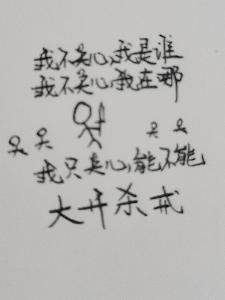 我不关心,我是谁
我不关心,我在哪
我只关心,能不能
大开杀戒